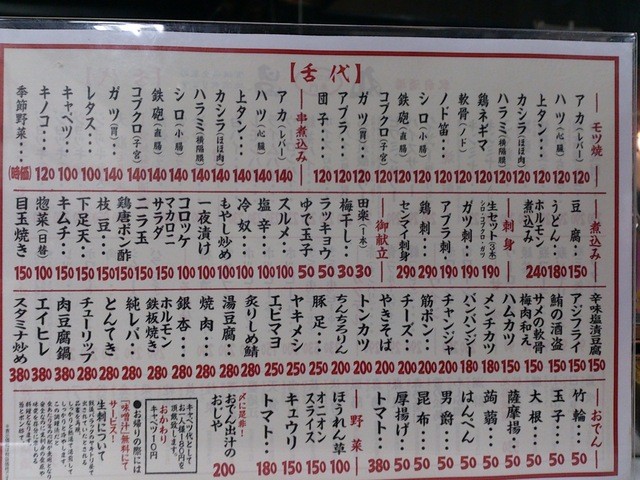 【舌代】
モツ焼
アカ(レバー) 120
ハツ(心臓) 120
上タン・・ 120
カシラ(ほほ肉) 120
ハラミ(横隔膜) 120
鶏ネギマ 120
軟骨(ノド) 120
ノド笛・・ 120
シロ(小腸) 120
鉄砲(直腸) 120
コブクロ(子宮) 120
ガツ(胃) 120
アブラ・・ 120
団子・・・ 120
串煮込み
アカ(レバー) 140
ハツ(心臓) 140
上タン・・ 140
カシラ(ほほ肉) 140
ハラミ(横隔膜) 140
シロ(小腸) 140
鉄砲(直腸) 140
コブクロ(子宮) 140
ガツ(胃) 140
レタス・・ 100
キャベツ・・ 100
キノコ・・ 120
季節野菜・・ (時価)
煮込み
豆腐・・ 150
うどん・・ 180
ホルモン煮込み 240
刺身
生セット(3本) シロ・コブクロ・ガツ 190
ガツ刺・ 190
アブラ刺・ 190
鶏刺・・ 190
センマイ刺身 290
御献立
田楽(1本) 30
梅干し・・ 30
ラッキョウ 50
ゆで玉子 50
スルメ・・ 100
塩辛・・ 100
冷奴・・ 100
もやし炒め 100
一夜漬け 100
コロッケ 100
マカロニサラダ 150
ニラ玉 150
鶏唐ポン酢 150
枝豆・・ 150
下足天・・ 150
キムチ・・ 150
惣菜(日替) 100
目玉焼き 150
辛味塩漬豆腐
アジフライ 150
鮪の酒盗 150
サメの軟骨梅肉和え 150
ハムカツ 150
メンチカツ 180
バンバンジー 180
チャンジャ 200
筋ポン・・ 200
チーズ・・ 200
やきそば 200
トンカツ 200
ちんちろりん 200
豚足・・ 200
ヤキメシ 250
エビマヨ 250
炙りしめ鯖 250
湯豆腐・・ 280
焼肉・・・ 380
銀杏・・ 380
ホルモン鉄板焼き 380
純レバ・・ 380
とんてき 380
チューリップ 380
肉豆腐鍋 380
エイヒレ 380
スタミナ炒め 380
おでん
竹輪・・ 50
玉子・・ 50
大根・・ 50
薩摩揚・ 50
蒟蒻・・ 50
はんぺん 50
男爵・・ 50
昆布・・ 50
厚揚げ・ 50
トマト・ 380
野菜
ほうれん草 100
オニオンスライス 150
キュウリ 150
トマト・ 180
〆に是非!
おでん出汁のおじや 200
キャベツ代としてお一人様80円を頂戴致します。
おかわり
キャベツ10円
●お帰りの際には「味噌汁」無料にてサービス!
生刺について